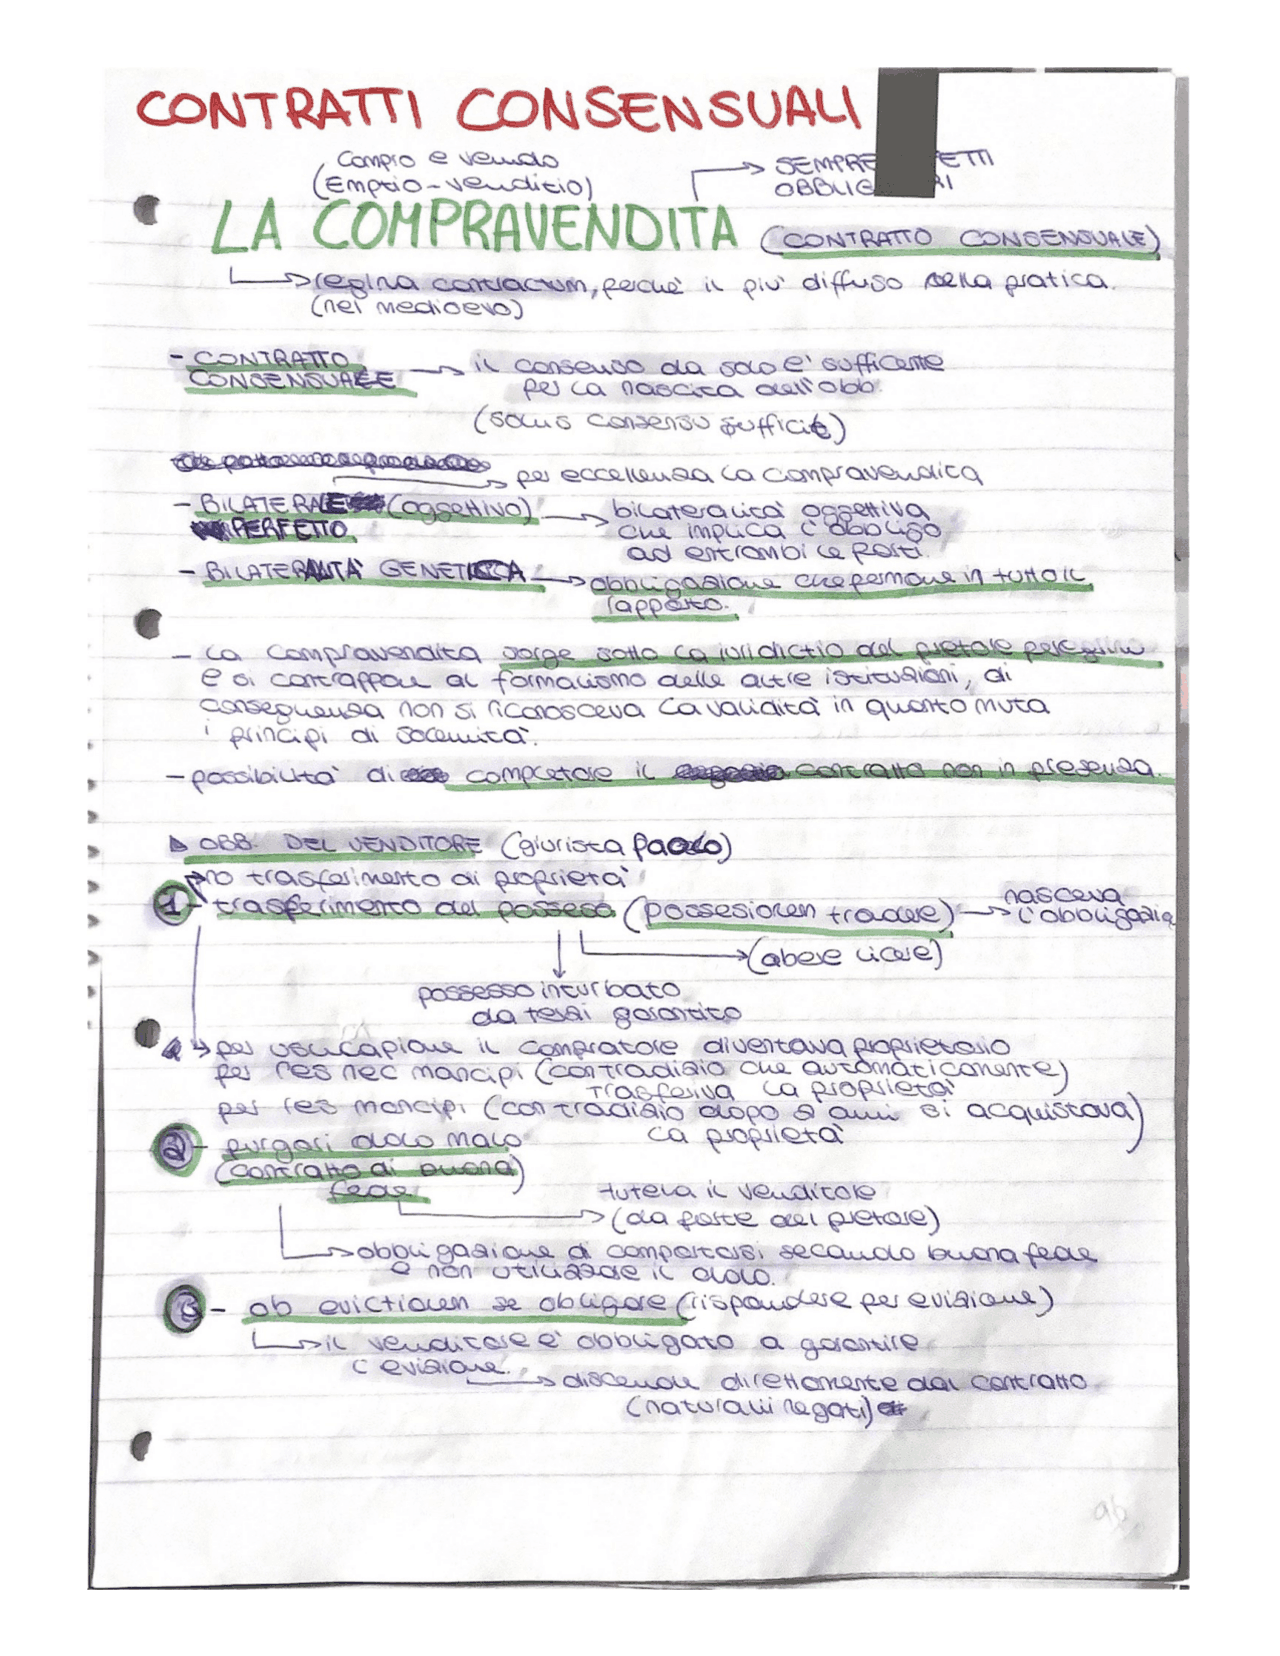 CONTRATTI CONSENSUALI
Compro e vendo
(Emptio-venditio)
SEMPRE ETTI
OBBLIG RI
LA COMPRAVENDITA (CONTRATTO CONSENSUALE)
regina contractum, perchè il più diffuso nella pratica.
(nel medioevo)
- CONTRATTO
CONSENSUALE
il consenso da solo è sufficente
per la nascita dell'obb.
(solus consensu sufficit)
per eccellenza la compravendita
- BILATERALE (oggettivo)
PERFETTO
bilateralità oggettiva
che implica l'obbligo
ad entrambi le parti.
- BILATERALITÀ GENETICA
obbligazione che permane in tutto il
rapporto.
- La compravendita sorge sotto la iuridictio del pretore peregrino
e si contrappone al formalismo delle altre istituzioni, di
conseguenza non si riconosceva la validità in quanto muta
i principi di solennità.
- possibilità di completare il contratto non in presenza.
OBB. DEL VENDITORE (giurista Paolo)
no trasferimento di proprietà
1 - trasferimento del possesso (possesioren tradere)
nasceva
l'obbligazio
(abere licere)
possesso inturbato
da terzi garantito
per usucapione il compratore diventava proprietario
per res nec mancipi (con tradizio che automaticamente)
trasferiva la proprietà
per res mancipi (con tradizio dopo 2 anni si acquistava)
la proprietà
2 - purgari dolo malo
(contratto di buona)
fede
tutela il venditore
(da parte del pretore)
obbligazione di comportarsi secondo buona fede
e non utilizzare il dolo.
3 - ob evictionem se obligare (rispondere per evizione)
il venditore è obbligato a garantire
l'evizione.
discende direttamente dal contratto
(naturali negoti)
ab